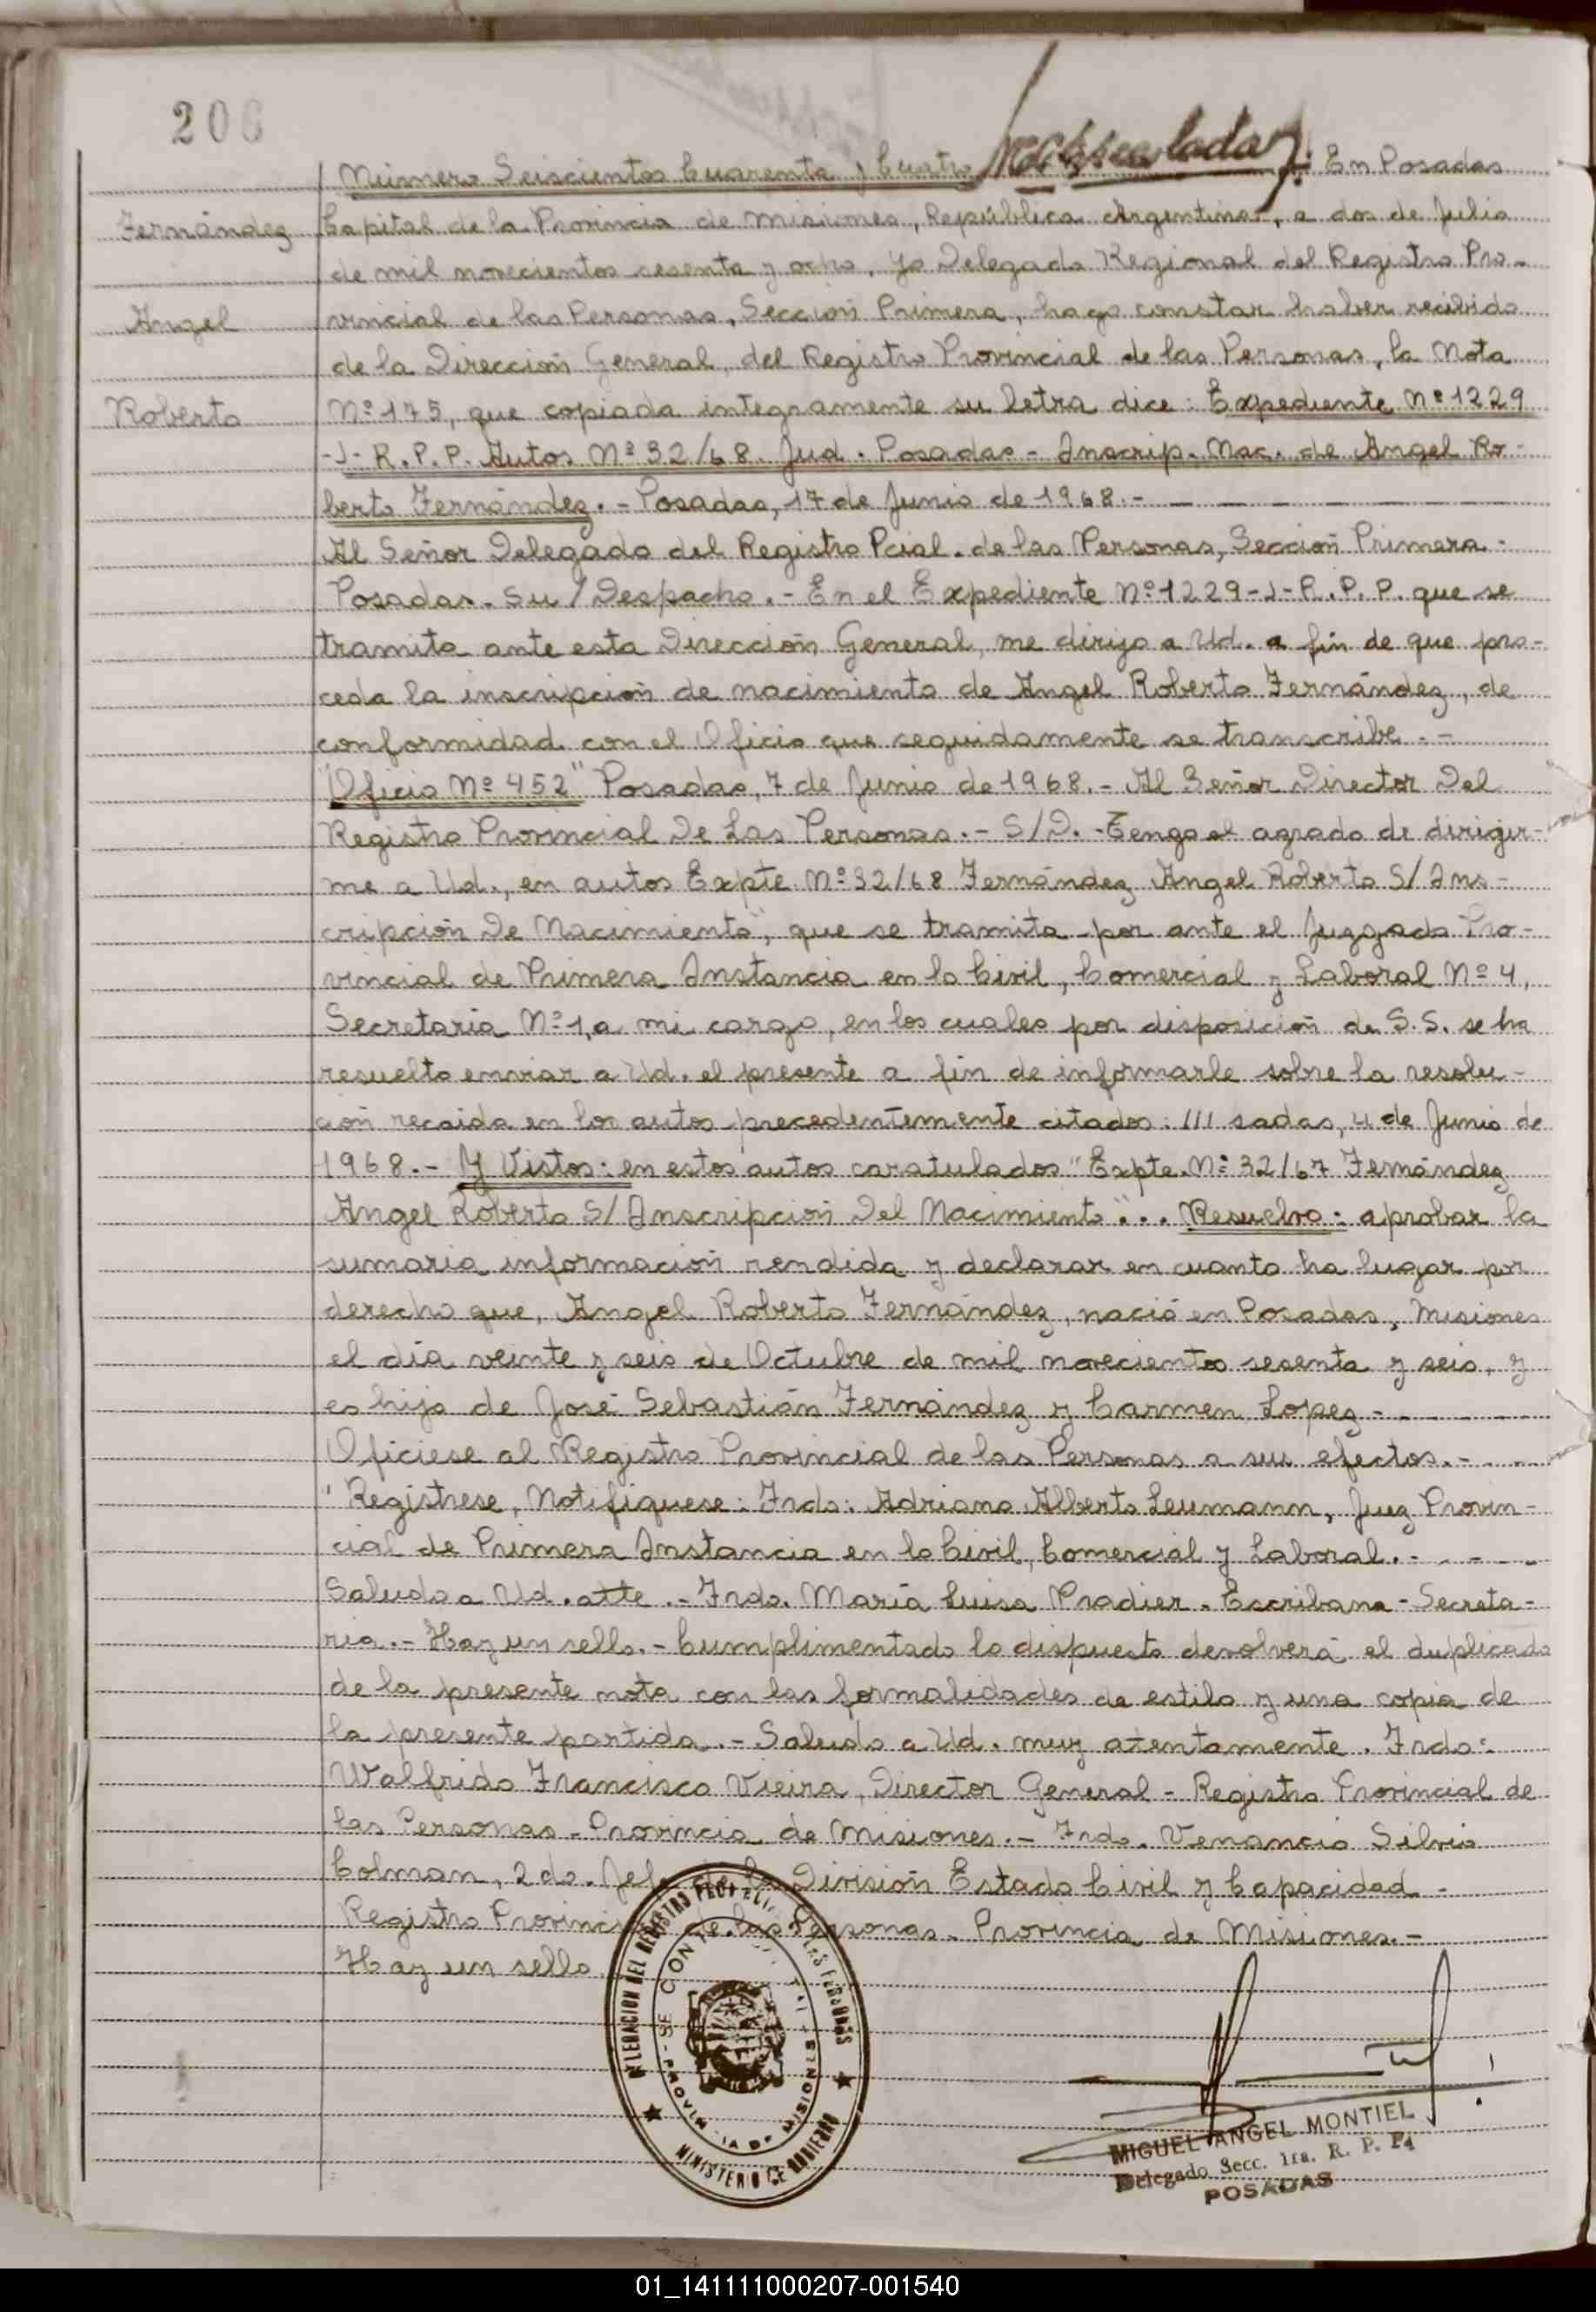 206
Número Seiscientos Cuarenta y Cuatro : En Posadas
Fernández
Capital de la Provincia de Misiones, República Argentina, a dos de Julio
de mil novecientos sesenta y ocho, yo Delegado Regional del Registro Pro-
Angel
vincial de las Personas, Sección Primera, hago constar haber recibido
de la Dirección General, del Registro Provincial de las Personas, la Nota
Roberto
Nº 175, que copiada integramente su letra dice: Expediente Nº 1229
-J- R.P.P. Autos Nº 32/68. Jud. Posadas - Inscrip. Nac. de Angel Ro-
berto Fernández. - Posadas, 17 de Junio de 1968.-
Al Señor Delegado del Registro Pcial. de las Personas, Sección Primera-
Posadas. Su/Despacho.- En el Expediente Nº 1229-J-R.P.P. que se
tramita ante esta Dirección General, me dirijo a Ud. a fin de que pro-
ceda la inscripción de nacimiento de Angel Roberto Fernández, de
conformidad con el Oficio que seguidamente se transcribe.-
"Oficio Nº 452" Posadas, 7 de Junio de 1968.- Al Señor Director Del
Registro Provincial De Las Personas.- S/D.- Tengo el agrado de dirigir-
me a Ud., en autos Expte. Nº 32/68 Fernández Angel Roberto S/Ins-
cripción De Nacimiento", que se tramita por ante el Juzgado Pro-
vincial de Primera Instancia en lo Civil, Comercial y Laboral Nº 4,
Secretaria Nº 1, a mi cargo, en los cuales por disposición de S.S. se ha
resuelto enviar a Ud. el presente a fin de informarle sobre la resolu-
ción recaida en los autos precedentemente citados: /// sadas, 4 de Junio de
1968.- Y Vistos: en estos autos caratulados "Expte. Nº 32/67 Fernández
Angel Roberto S/Inscripción Del Nacimiento"... Resuelvo: aprobar la
sumaria información rendida y declarar en cuanto ha lugar por
derecho que, Angel Roberto Fernández, nació en Posadas, Misiones
el día veinte y seis de Octubre de mil novecientos sesenta y seis, y
es hijo de José Sebastián Fernández y Carmen Lopez-
Oficiese al Registro Provincial de las Personas a sus efectos.-
" Registrese, Notifiquese: Fndo: Adriano Alberto Leumann, Juez Provin-
cial de Primera Instancia en lo Civil, Comercial y Laboral.-
Saludo a Ud. atte.- Fndo. María Luisa Pradier. Escribana - Secreta-
ria.- Hay un sello.- Cumplimentado lo dispuesto devolverá el duplicado
de la presente nota con las formalidades de estilo y una copia de
la presente partida.- Saludo a Ud. muy atentamente. Fndo:
Walfrido Francisco Vieira, Director General - Registro Provincial de
las Personas - Provincia de Misiones.- Fndo. Venancio Silvio
Colman, 2do. Jefe de la División Estado Civil y Capacidad -
Registro Provincial de las Personas. Provincia de Misiones.-
Hay un sello.
DELEGACION DEL REGISTRO PROVINCIAL DE LAS PERSONAS
PROVINCIA DE MISIONES
MINISTERIO DE GOBIERNO
MIGUEL ANGEL MONTIEL
Delegado Secc. 1ra. R. P. P.
POSADAS
01_141111000207-001540